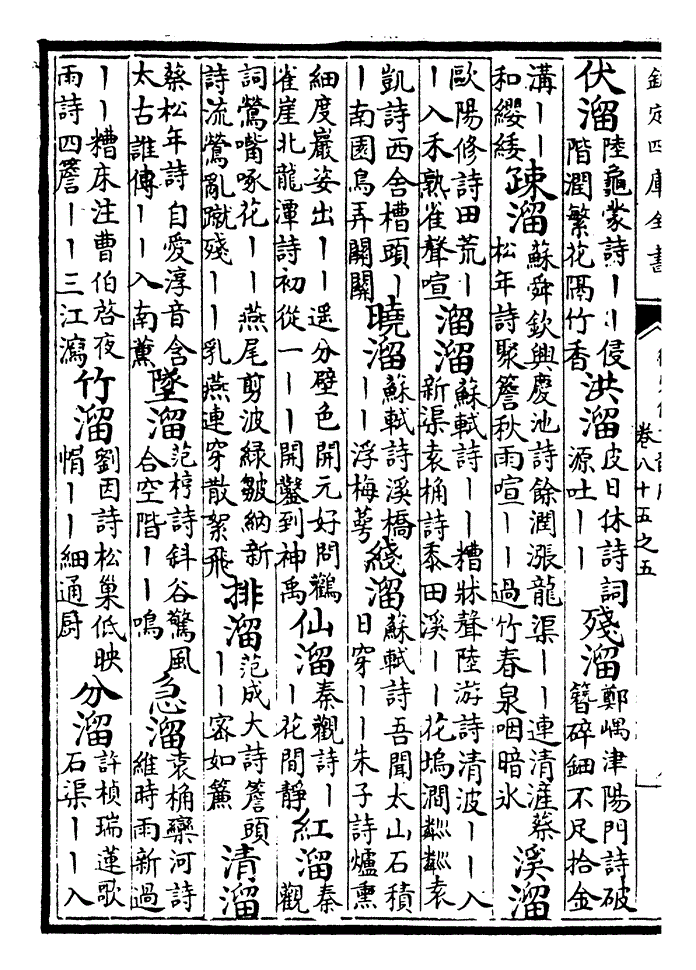 欽定四庫全書
卷八十五之五
伏溜 陸龜蒙詩丨丨侵階潤繁花隔竹香 洪溜 皮日休詩詞源吐丨丨 殘溜 鄭嵎津陽門詩破簪碎鈿不足拾金
溝丨丨和纓緌 疎溜 蘇舜欽興慶池詩餘潤漲龍渠丨丨連清涯蔡松年詩聚簷秋雨喧丨丨過竹春泉咽暗氷 溪溜
歐陽修詩田荒丨丨入禾熟雀聲喧 溜溜 蘇軾詩丨丨糟牀聲陸游詩清波丨丨入新渠袁桷詩黍田溪丨丨花塢澗粼粼袁
凱詩西舍槽頭丨丨南園鳥弄關關 曉溜 蘇軾詩溪橋丨丨浮梅萼 綫溜 蘇軾詩吾聞太山石積日穿丨丨朱子詩爐熏
細度巖姿出丨丨遥分壁色開元好問鸛雀崖北龍潭詩初從一丨丨開鑿到神禹 仙溜 秦觀詩丨丨花間靜 紅溜 秦觀
詞鶯嘴啄花丨丨燕尾剪波緑皺納新詩流鶯亂蹴殘丨丨乳燕連穿散絮飛 排溜 范成大詩簷頭丨丨密如簾 清溜
蔡松年詩自愛淳音含太古誰傳丨丨入南薰 墜溜 范梈詩斜谷驚風合空階丨丨鳴 急溜 袁桷灤河詩維時雨新過
丨丨糟床注曹伯啓夜雨詩四簷丨丨三江瀉 竹溜 劉因詩松巢低映丨丨細通厨 分溜 許楨瑞蓮歌石渠丨丨入